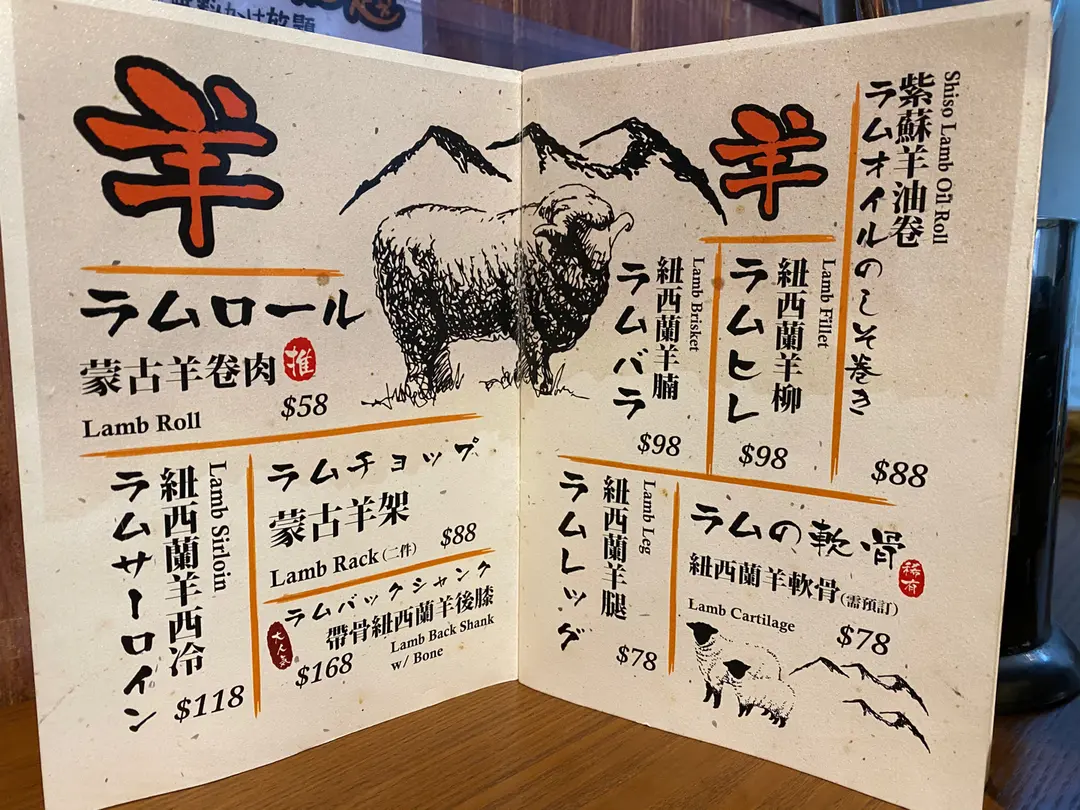 無料かけ放題
羊
ラムロール
蒙古羊卷肉
推
Lamb Roll
$58
ラムサーロイン
紐西蘭羊西冷
Lamb Sirloin
$118
ラムチョップ
蒙古羊架
Lamb Rack (二件)
$88
ラムバックシャンク
大人氣
帶骨紐西蘭羊後膝
Lamb Back Shank
w/ Bone
$168
羊
紫蘇羊油卷
Shiso Lamb Oil Roll
ラムオイルのしそ巻き
$88
紐西蘭羊柳
Lamb Fillet
ラムヒレ
$98
紐西蘭羊腩
Lamb Brisket
ラムバラ
$98
ラムレッグ
紐西蘭羊腿
Lamb Leg
$78
ラムの軟骨
紐西蘭羊軟骨(需預訂)
稀有
Lamb Cartilage
$78